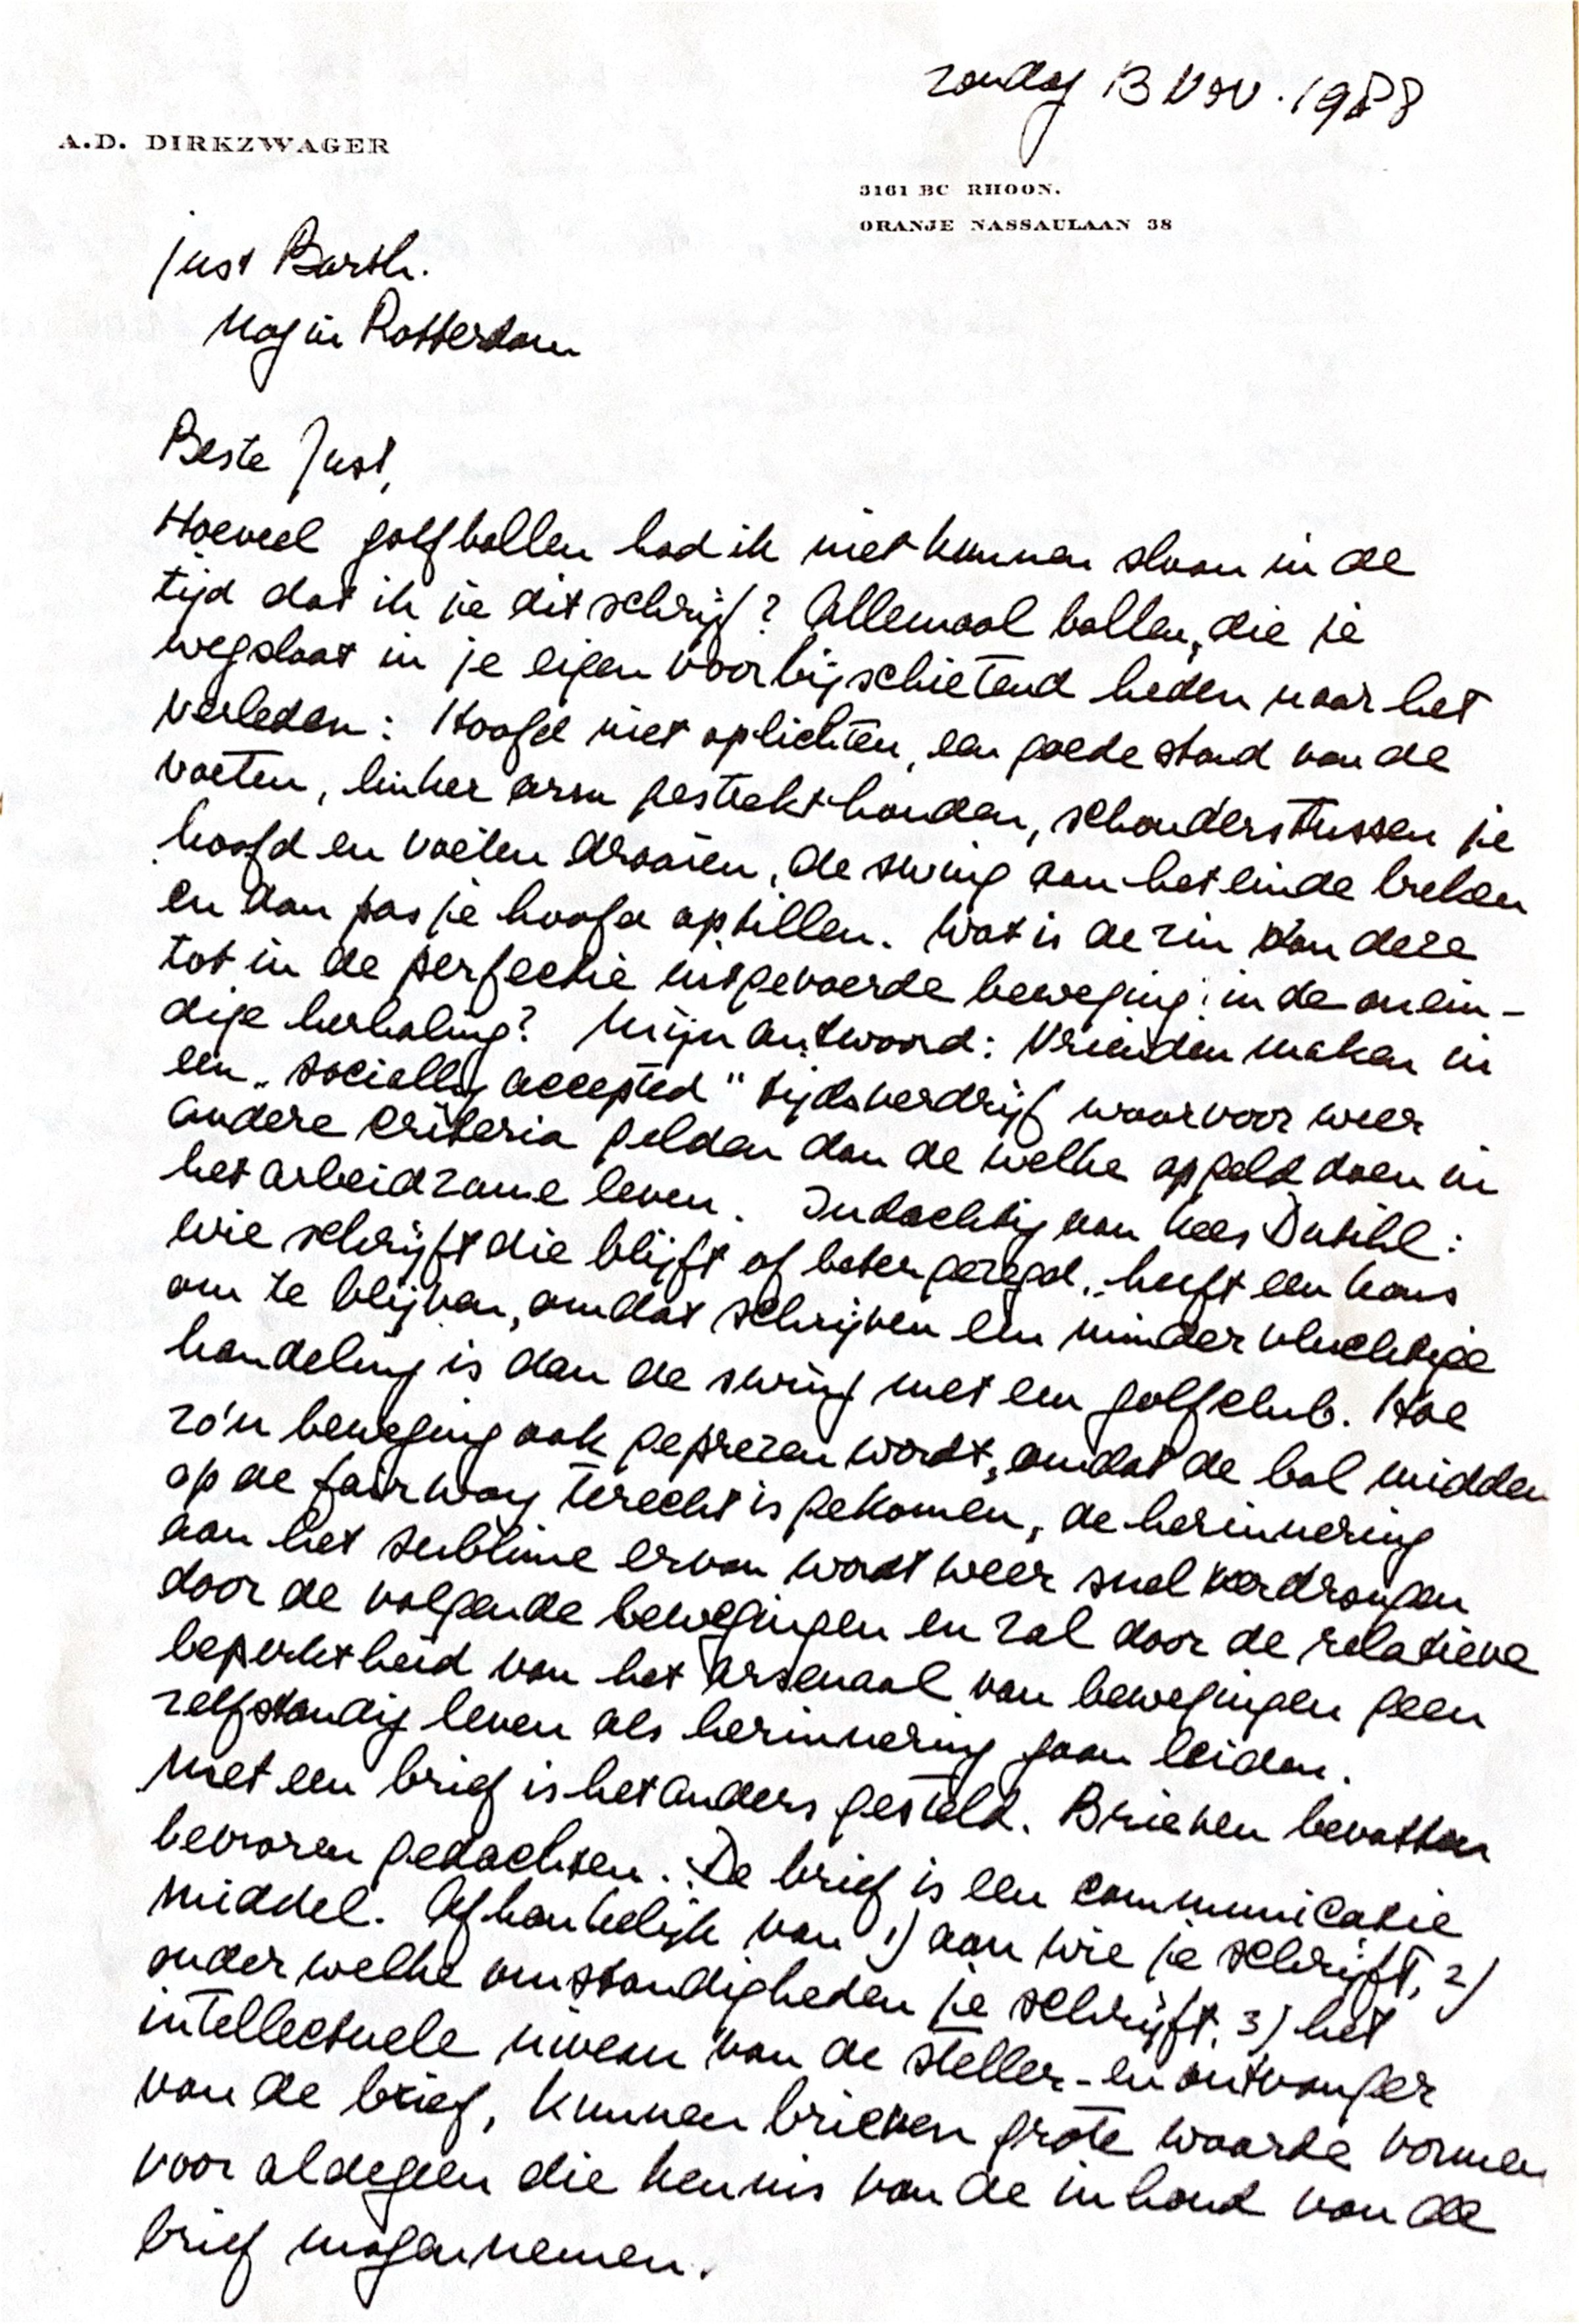 zondag 13 Nov. 1988
A.D. DIRKZWAGER
3161 BC RHOON.
ORANJE NASSAULAAN 38
Just Barth.
Nog in Rotterdam
Beste Just,
Hoeveel golfballen had ik niet kunnen slaan in de
tijd dat ik je dit schrijf? Allemaal ballen, die je
wegslaat in je eigen voorbijschietend heden naar het
verleden: Hoofd niet oplichten, een goede stand van de
voeten, linker arm gestrekt houden, schouders tussen je
hoofd en voeten draaien, de swing aan het einde breken
en dan pas je hoofd optillen. Wat is de zin van deze
tot in de perfectie uitgevoerde beweging in de onein-
dige herhaling? Mijn antwoord: Vrienden maken in
een "socially accepted" tijdsverdrijf waarvoor weer
andere criteria gelden dan de welke opgeld doen in
het arbeidzame leven. Indachtig aan Kees :
wie schrijft die blijft of beter gezegd, heeft een kans
om te blijven, omdat schrijven een minder vluchtige
handeling is dan de swing met een golfclub. Hoe
zo'n beweging ook geprezen wordt, omdat de bal midden
op de fairway terecht is gekomen, de herinnering
aan het sublime ervan wordt weer snel verdrongen
door de volgende bewegingen en zal door de relatieve
beperktheid van het arsenaal van bewegingen geen
zelfstandig leven als herinnering gaan leiden.
Met een brief is het anders gesteld. Brieven bevatten
bevroren gedachten. De brief is een communicatie
middel. Afhankelijk van 1) aan wie je schrijft, 2)
onder welke omstandigheden je schrijft, 3) het
intellectuele niveau van de steller- en ontvanger
van de brief, kunnen brieven grote waarde vormen
voor al degeen die kennis van de inhoud van de
brief mogen nemen.